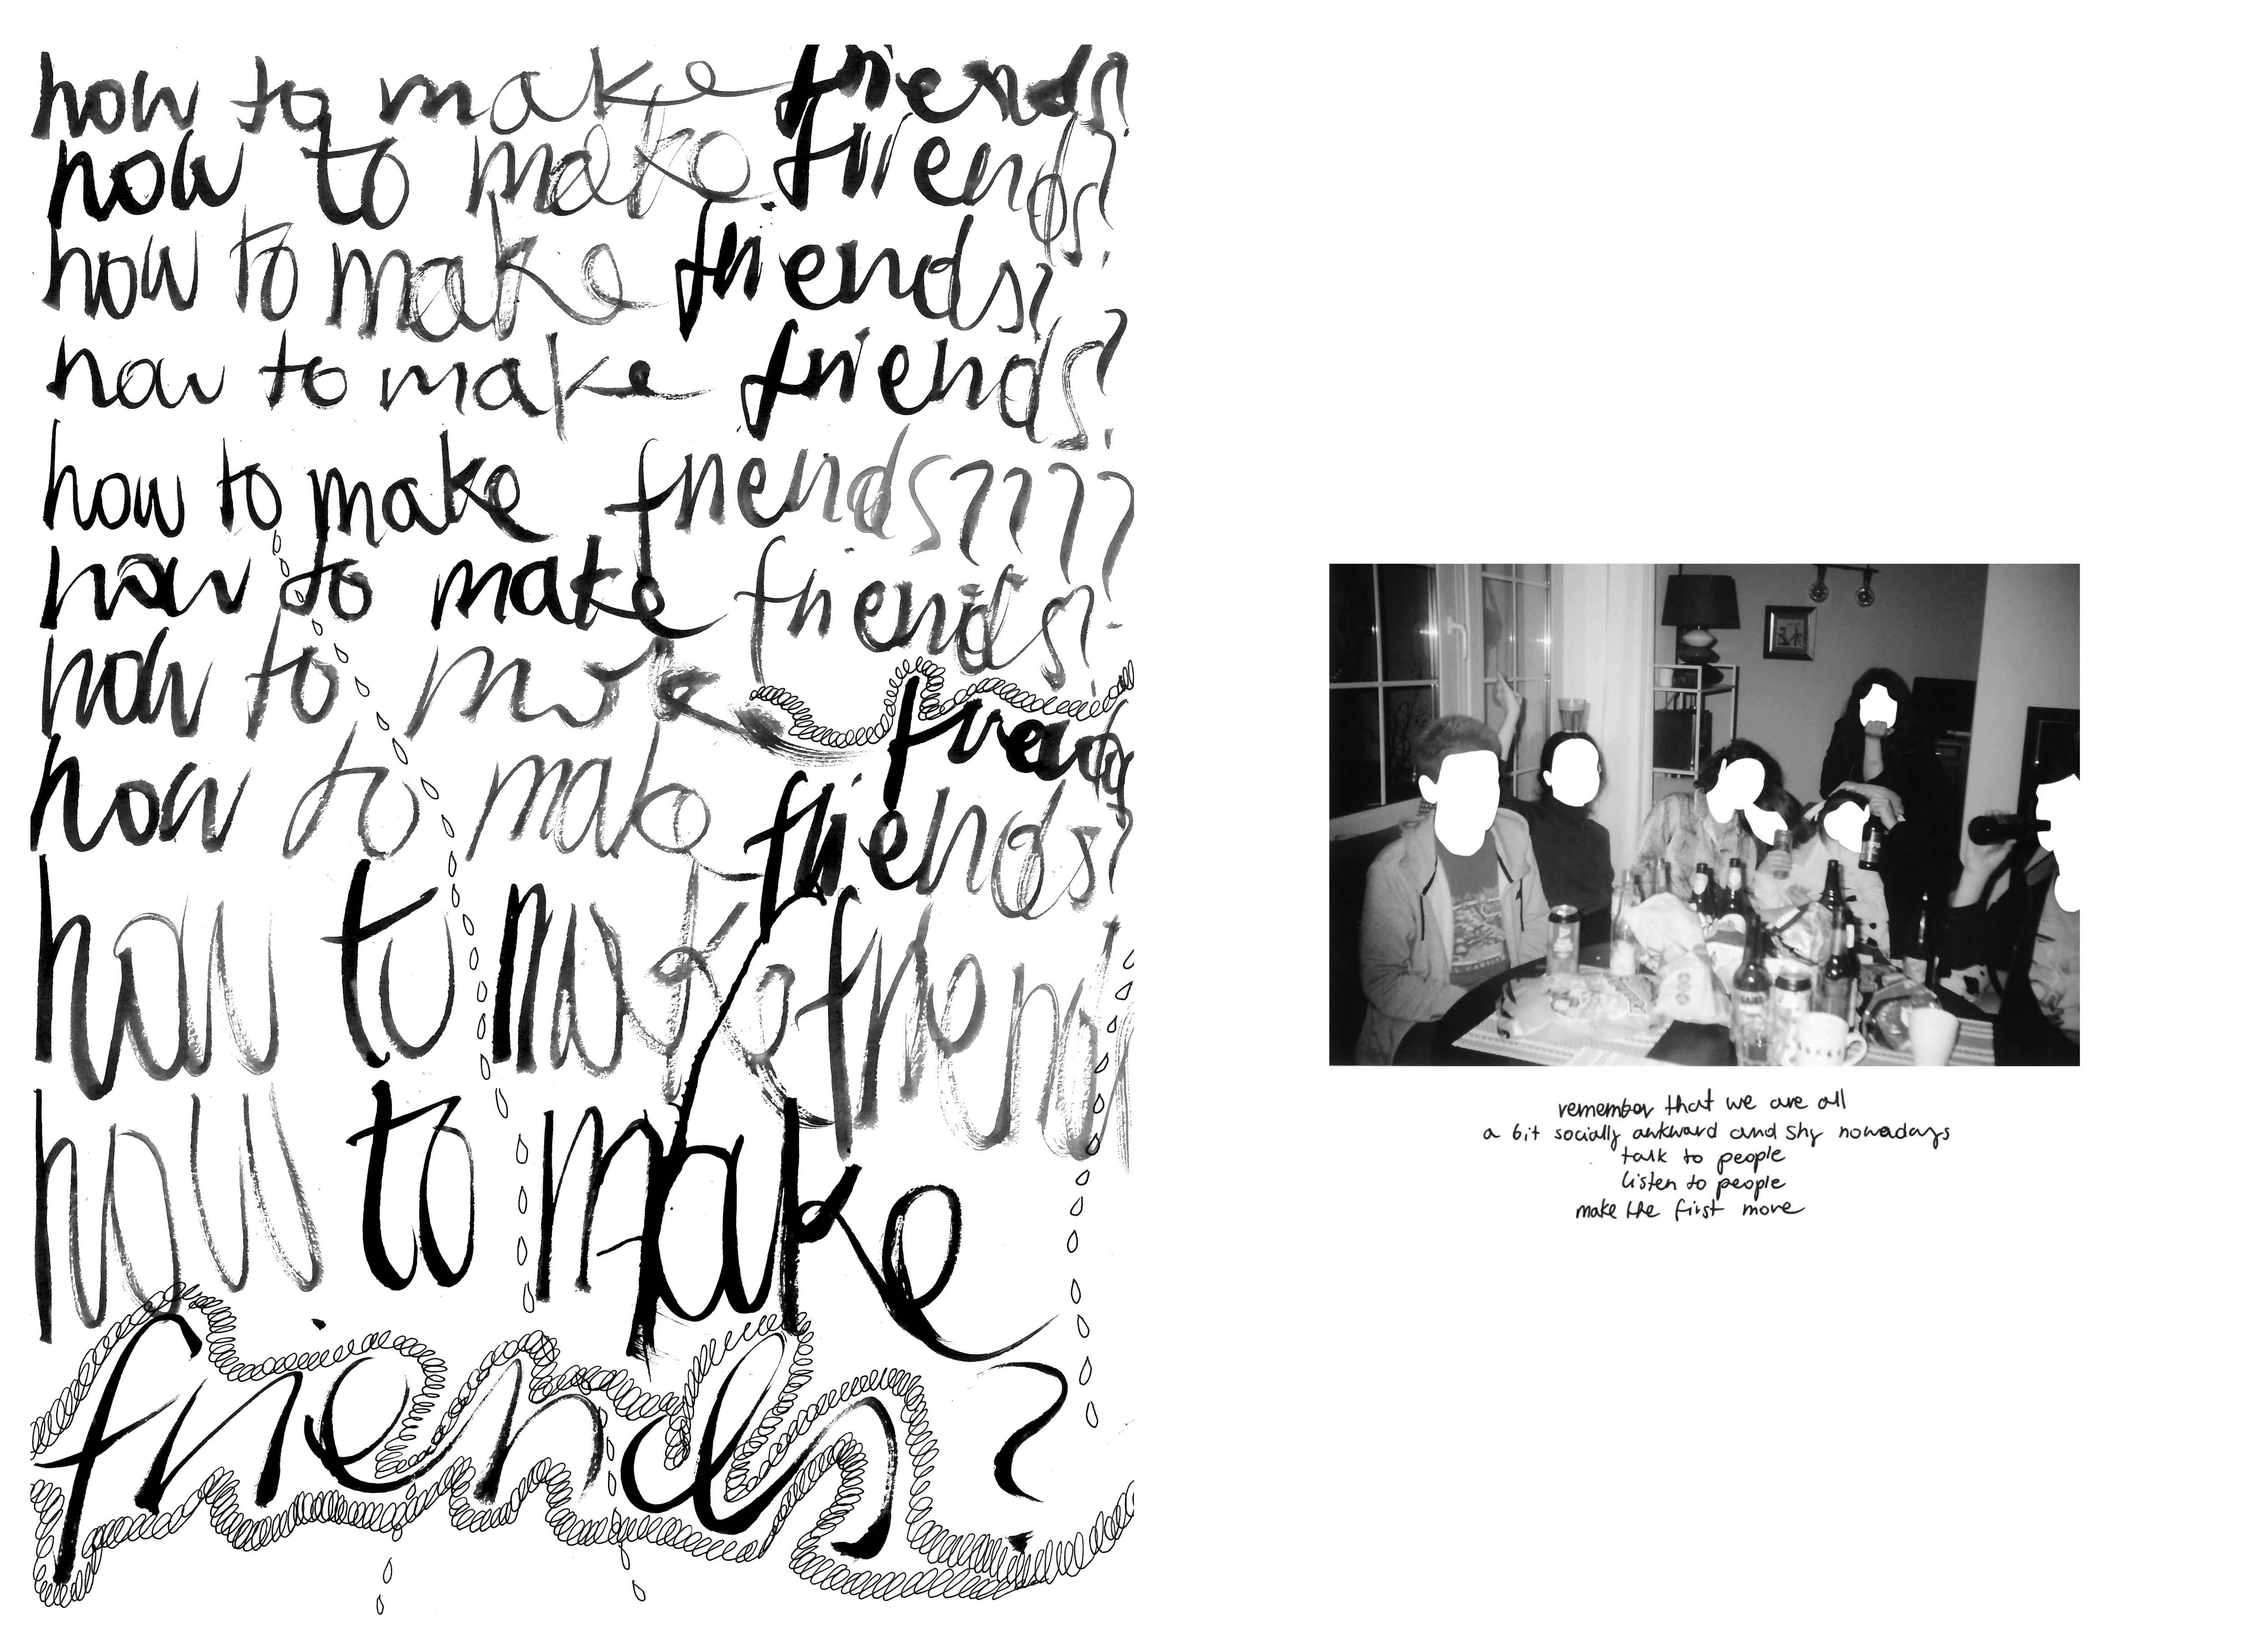 how to make friends?
how to make friends?
how to make friends?
how to make friends?
how to make friends????
how to make friends?
how to make
friends
how to make friends?
how to make friends
how to make
friends?
remember that we are all
a bit socially awkward and shy nowadays
talk to people
listen to people
make the first move